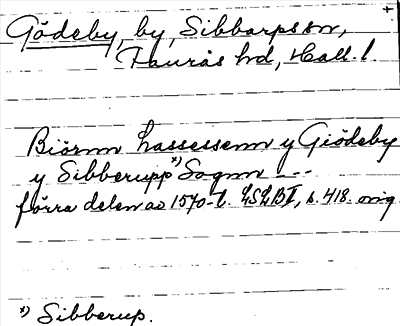 Gödeby, by, Sibbarps sn,
Faurås hd, Hall. l.
Biörnn Lassessenn y Giödeby
y Sibberupp *) Sognn ---
förra delen av 1570-t. LSLBI, s. 418. orig.
*) Sibberup.